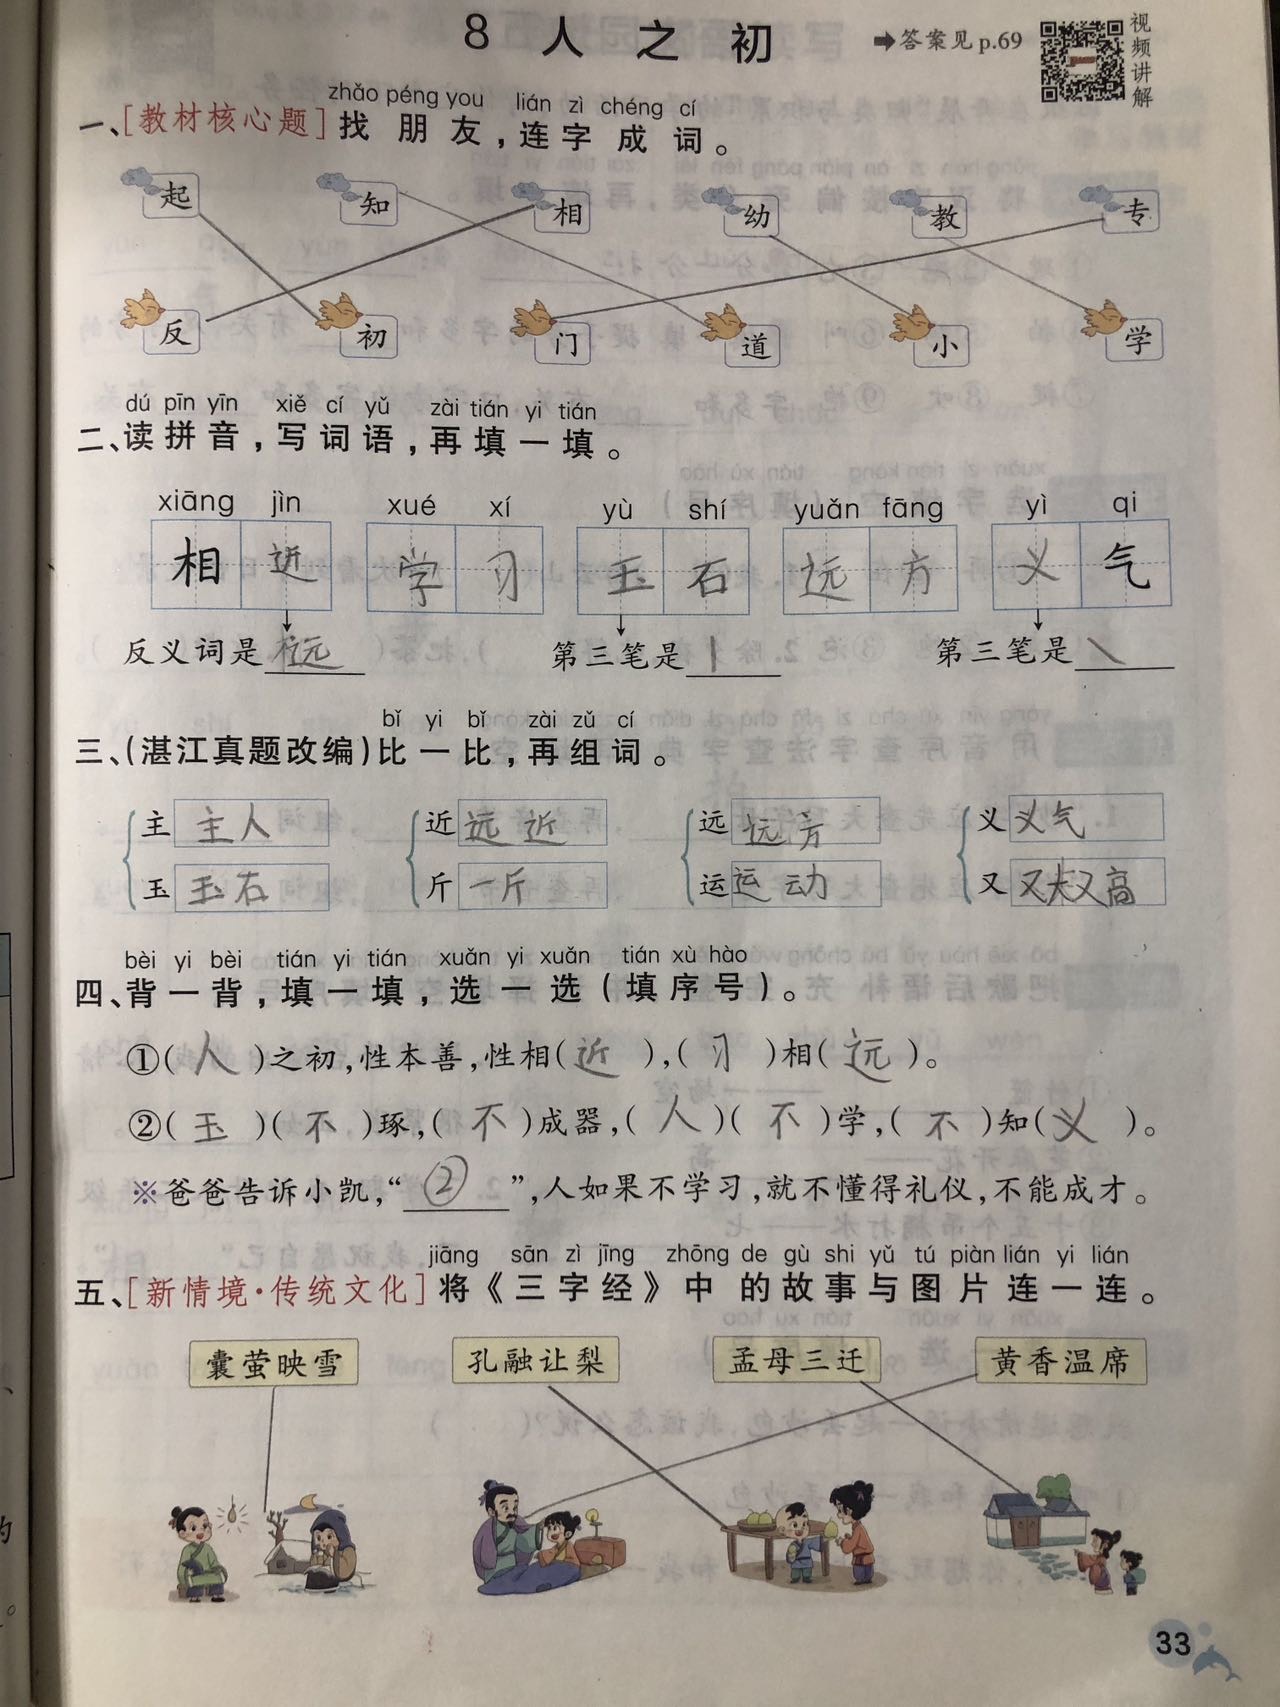 8 人之初 ➡答案见p.69 视频讲解
zhǎo péng you lián zì chéng cí
一、[教材核心题]找朋友,连字成词。
起 知 相 幼 教 专
反 初 门 道 小 学
dú pīn yīn xiě cí yǔ zài tián yi tián
二、读拼音,写词语,再填一填。
xiāng jìn xué xí yù shí yuǎn fāng yì qi
相近 学习 玉石 远方 义气
反义词是 远 第三笔是丨 第三笔是㇏
bǐ yi bǐ zài zǔ cí
三、(湛江真题改编)比一比,再组词。
主 主人 近 远近 远 远方 义 义气
玉 玉石 斤 一斤 运 运动 又 又大又高
bèi yi bèi tián yi tián xuǎn yi xuǎn tián xù hào
四、背一背,填一填,选一选(填序号)。
①(人)之初,性本善,性相(近),(习)相(远)。
②(玉)(不)琢,(不)成器,(人)(不)学,(不)知(义)。
※爸爸告诉小凯,“②”,人如果不学习,就不懂得礼仪,不能成才。
jiāng sān zì jīng zhōng de gù shi yǔ tú piàn lián yi lián
五、[新情境·传统文化]将《三字经》中的故事与图片连一连。
囊萤映雪 孔融让梨 孟母三迁 黄香温席
33